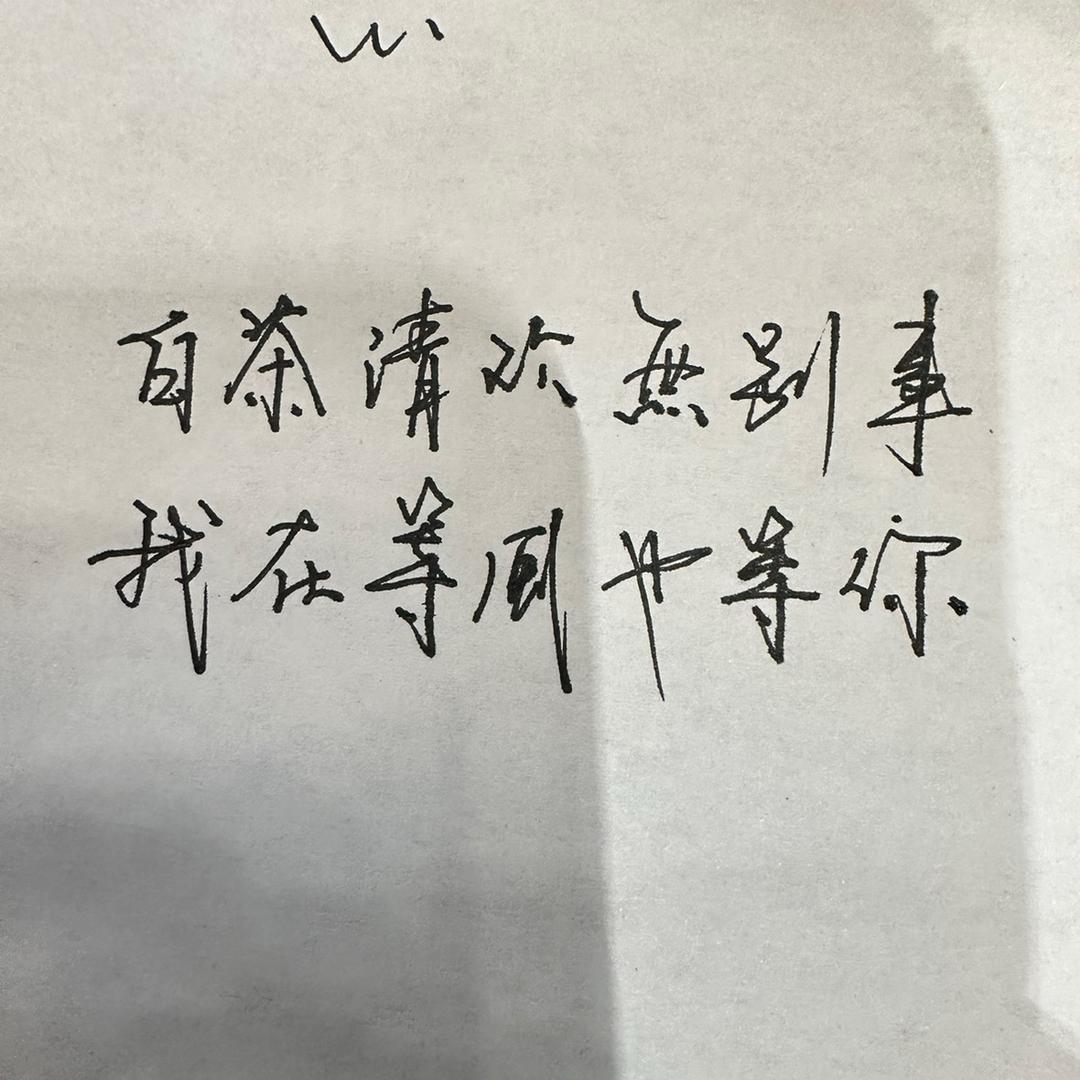 白茶清欢無别事
我在等風也等你